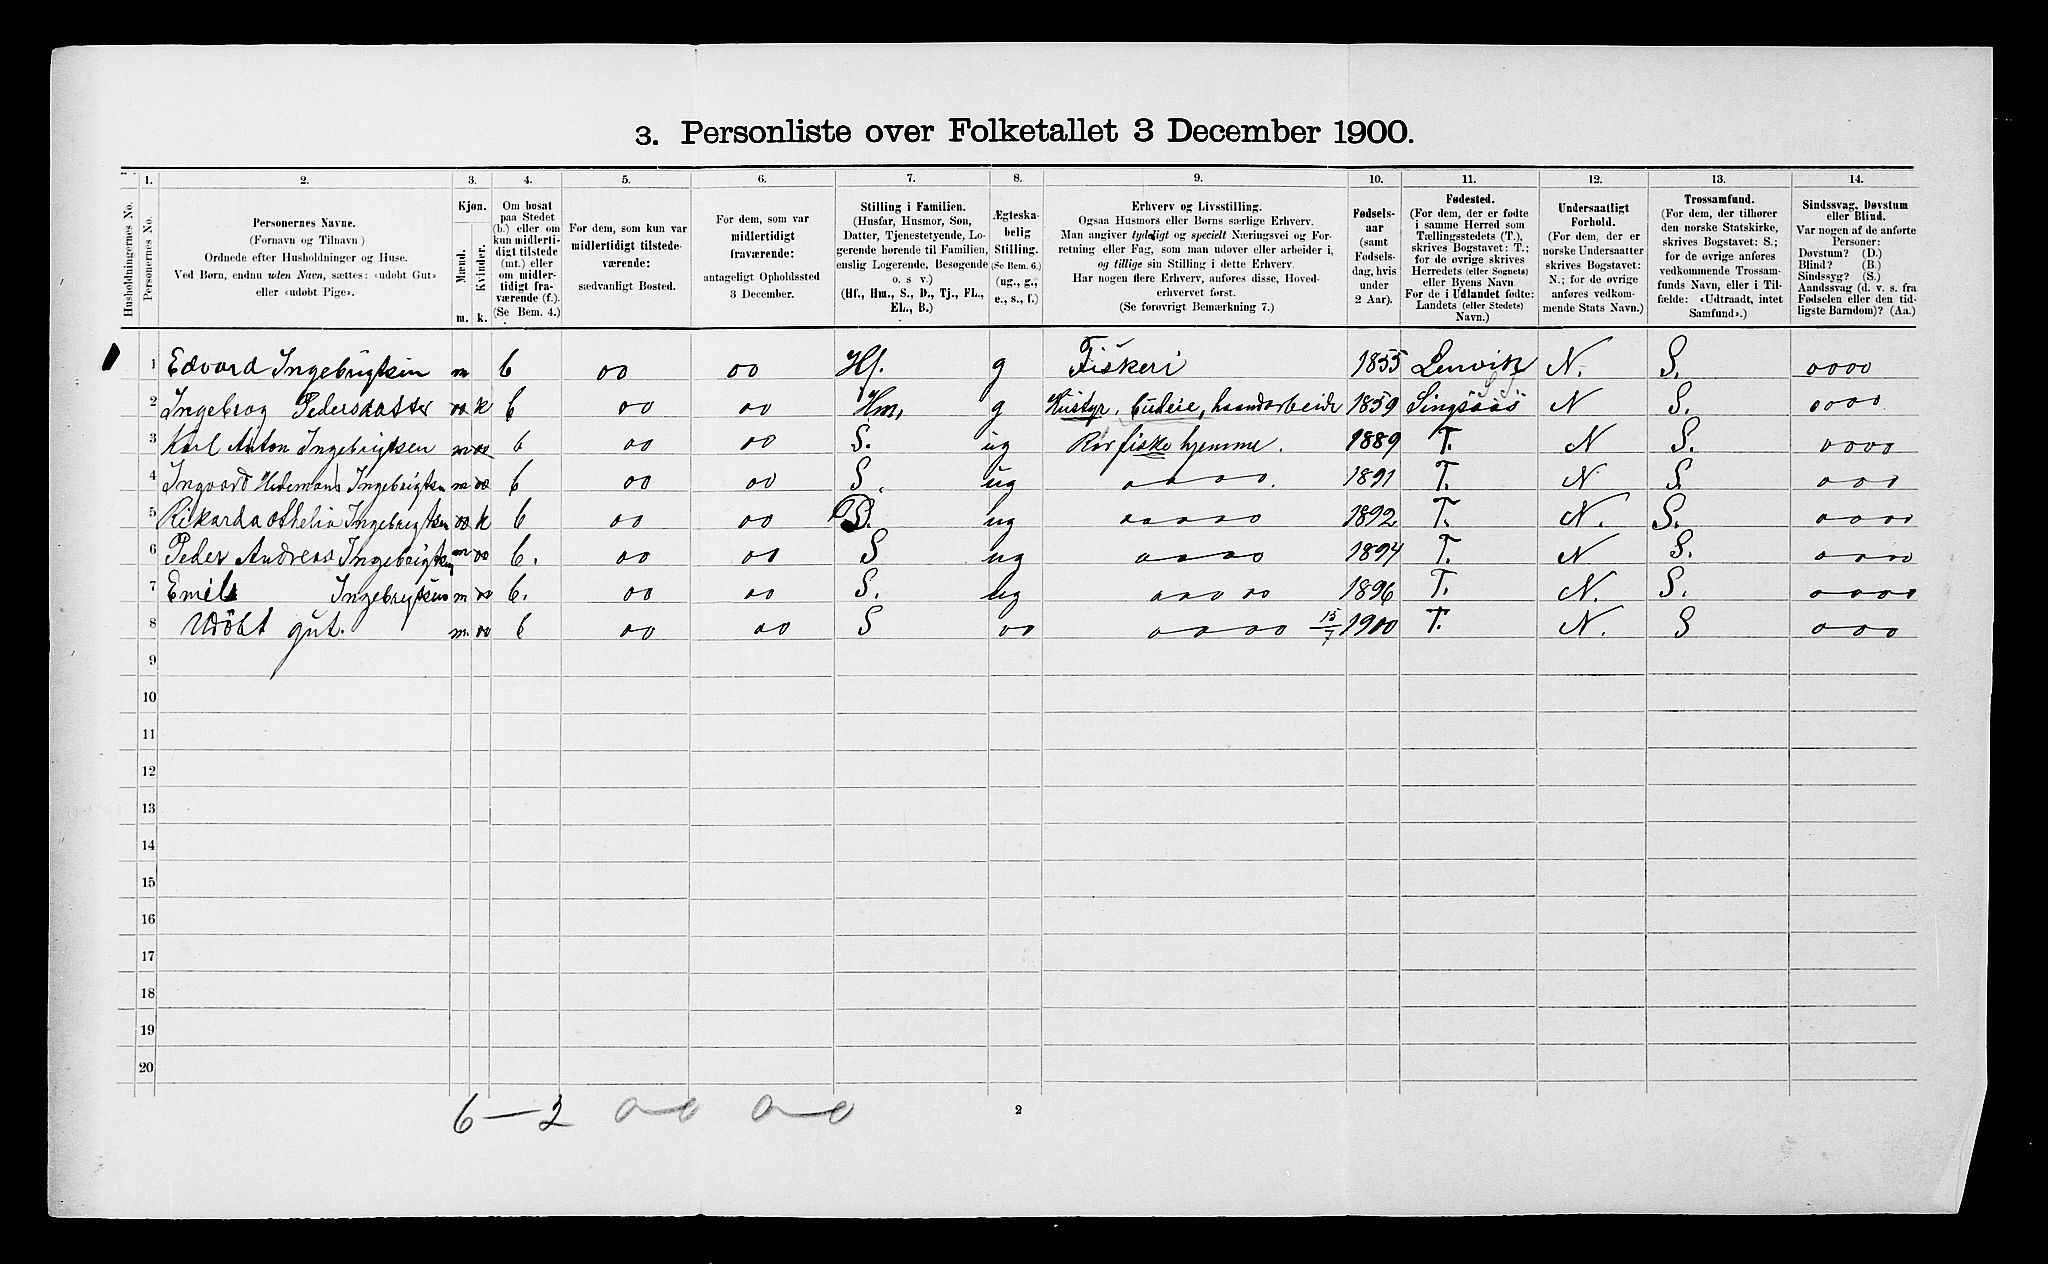 3. Personliste over Folketallet 3 December 1900.
Husholdningernes No.
1.
Personernes No.
2.
Personernes Navne.
(Fornavn og Tilnavn)
Ordnede efter Husholdninger og Huse.
Ved Børn, endnu uden Navn, sættes: «udøbt Gut»
eller «udøbt Pige».
3.
Kjøn.
Mænd.
Kvinder.
m. k.
4.
Om bosat
paa Stedet
(b.) eller om
kun midlerti-
digt tilstede
(mt.) eller
om midler-
tidigt fra-
værende (f.).
(Se Bem. 4.)
5.
For dem, som kun var
midlertidigt tilstede-
værende:
sædvanligt Bosted.
6.
For dem, som var
midlertidigt
fraværende:
antageligt Opholdssted
3 December.
7.
Stilling i Familien.
(Husfar, Husmor, Søn,
Datter, Tjenestetyende, Lo-
gerende hørende til Familien,
enslig Logerende, Besøgende
o. s v.)
(Hf., Hm., S., D., Tj., FL.,
EL., B.)
8.
Ægteska-
belig
Stilling.
(Se Bem. 6.)
(ug., g.,
e., s., f.)
9.
Erhverv og Livsstilling.
Ogsaa Husmors eller Børns særlige Erhverv.
Man angiver tydeligt og specielt Næringsvei og For-
retning eller Fag, som man udøver eller arbeider i,
og tillige sin Stilling i dette Erhverv.
Har nogen flere Erhverv, anføres disse, Hoved-
erhvervet først.
(Se forøvrigt Bemærkning 7.)
10.
Fødsels-
aar
(samt
Fødsels-
dag, hvis
under
2 Aar).
11.
Fødested.
(For dem, der er fødte
i samme Herred som
Tællingsstedets (T.),
skrives Bogstavet: T.;
for de øvrige skrives
Herredets (eller Sognets)
eller Byens Navn.
For de i Udlandet fødte:
Landets (eller Stedets)
Navn.)
12.
Undersaatligt
Forhold.
(For dem, der er
norske Undersaatter
skrives Bogstavet:
N.; for de øvrige
anføres vedkom-
mende Stats Navn.)
13.
Trossamfund.
(For dem, der tilhører
den norske Statskirke,
skrives Bogstavet: S.;
for de øvrige anføres
vedkommende Trossam-
funds Navn, eller i Til-
fælde: «Udtraadt, intet
Samfund».)
14.
Sindssvag, Døvstum
eller Blind.
Var nogen af de anførte
Personer:
Døvstum? (D.)
Blind? (B.)
Sindssyg? (S.)
Aandssvag (d. v. s. fra
Fødselen eller den tid-
ligste Barndom)? (Aa.)
1 Edvard Ingebrigtsen m b oo oo Hf. g Fiskeri 1855 Lenvik N. S. oooo
2 Ingebrog Pedersdatter oo k b oo oo Hm, g Hustyr. Budeie, haandarbeide 1859 Singsaas N S. oooo
3 Karl Anton Ingebrigtsen m oo b oo oo S. ug Ror fiske hjemme. 1889 T. N S. oooo
4 Ingvard Hedemans Ingebrigtsen m oo b oo oo S. ug oooo. 1891 T. N S. ooo
5 Rikarda othelia Ingebrigtsen oo k b oo oo D. ug ooooo 1892 T. N. S. oooo
6 Peder Andreas Ingebrigtsen m oo b. oo oo S ug oooo 1894 T. N S. oooo
7 Emil Ingebrigtsen m oo b. oo oo S. ug ooooo 1896 T. N. S. oooo
8 Udöbt gut. m. oo b oo oo S oo oooo 15/7 1900 T. N. S ooo
9
10
11
12
13
14
15
16
17
18
19
20
6—2 o-o o-o
2